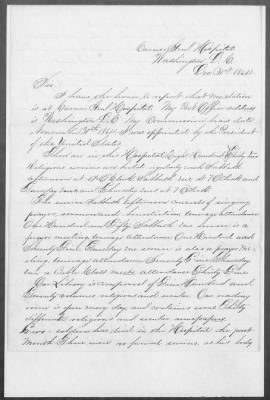 Carver Genl Hospital
Washington D.C.
Dec 31st 1864.
Sir.
I have the honor to report that my station
is at Carver Genl Hospital. My Post Office address
is Washington D.C. My Commission has date
I was appointed by the President
of the United States.
There are in the Hospital Eight Hundred
Religious services are held
afternoon at O'Clock, Sabbath eve at 7 O'clock and
Tuesday eve and Thursday eve at 7 O'clock.
The service Sabbath afternoon consists of singing
prayer, sermon and benediction average attendance
One Hundred and Fifty Sabbath eve service is a
prayer meeting average attendance One Hundred and
Seventy Five Tuesday eve service is also a prayer me-
eting, average attendance Seventy Five Thursday
eve a Bible Class meets attendance Thirty Five
Our Library is composed of Hundred and
Seventy volumes religious and secular. Our reading
room is open every day, and contains some Thirty
different religious and secular newspapers.
soldiers has died in the Hospital the past
Month There was no funeral service as his body